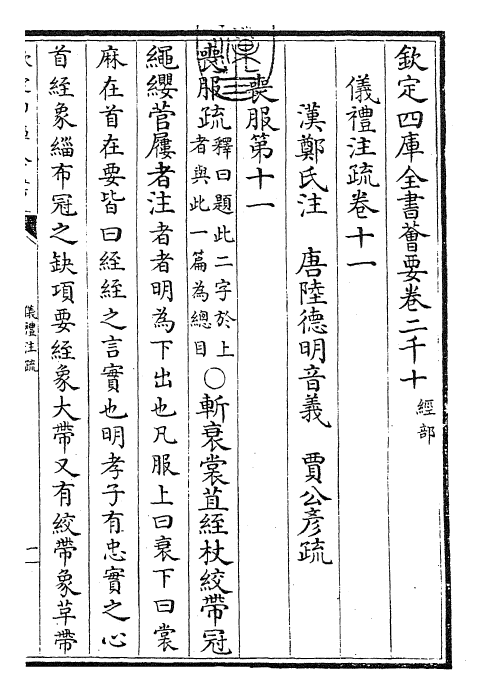 欽定四庫全書薈要卷二千十 經部
儀禮注疏卷十一
漢鄭氏注 唐陸德明音義 賈公彥疏
喪服第十一
喪服疏釋曰題此二字於上者與此一篇為總目○斬衰裳苴絰杖絞帶冠
繩纓菅屨者注者者明為下出也凡服上曰衰下曰裳
麻在首在要皆曰絰絰之言實也明孝子有忠實之心
首絰象緇布冠之缺項要絰象大帶又有絞帶象革帶
儀禮注疏
一